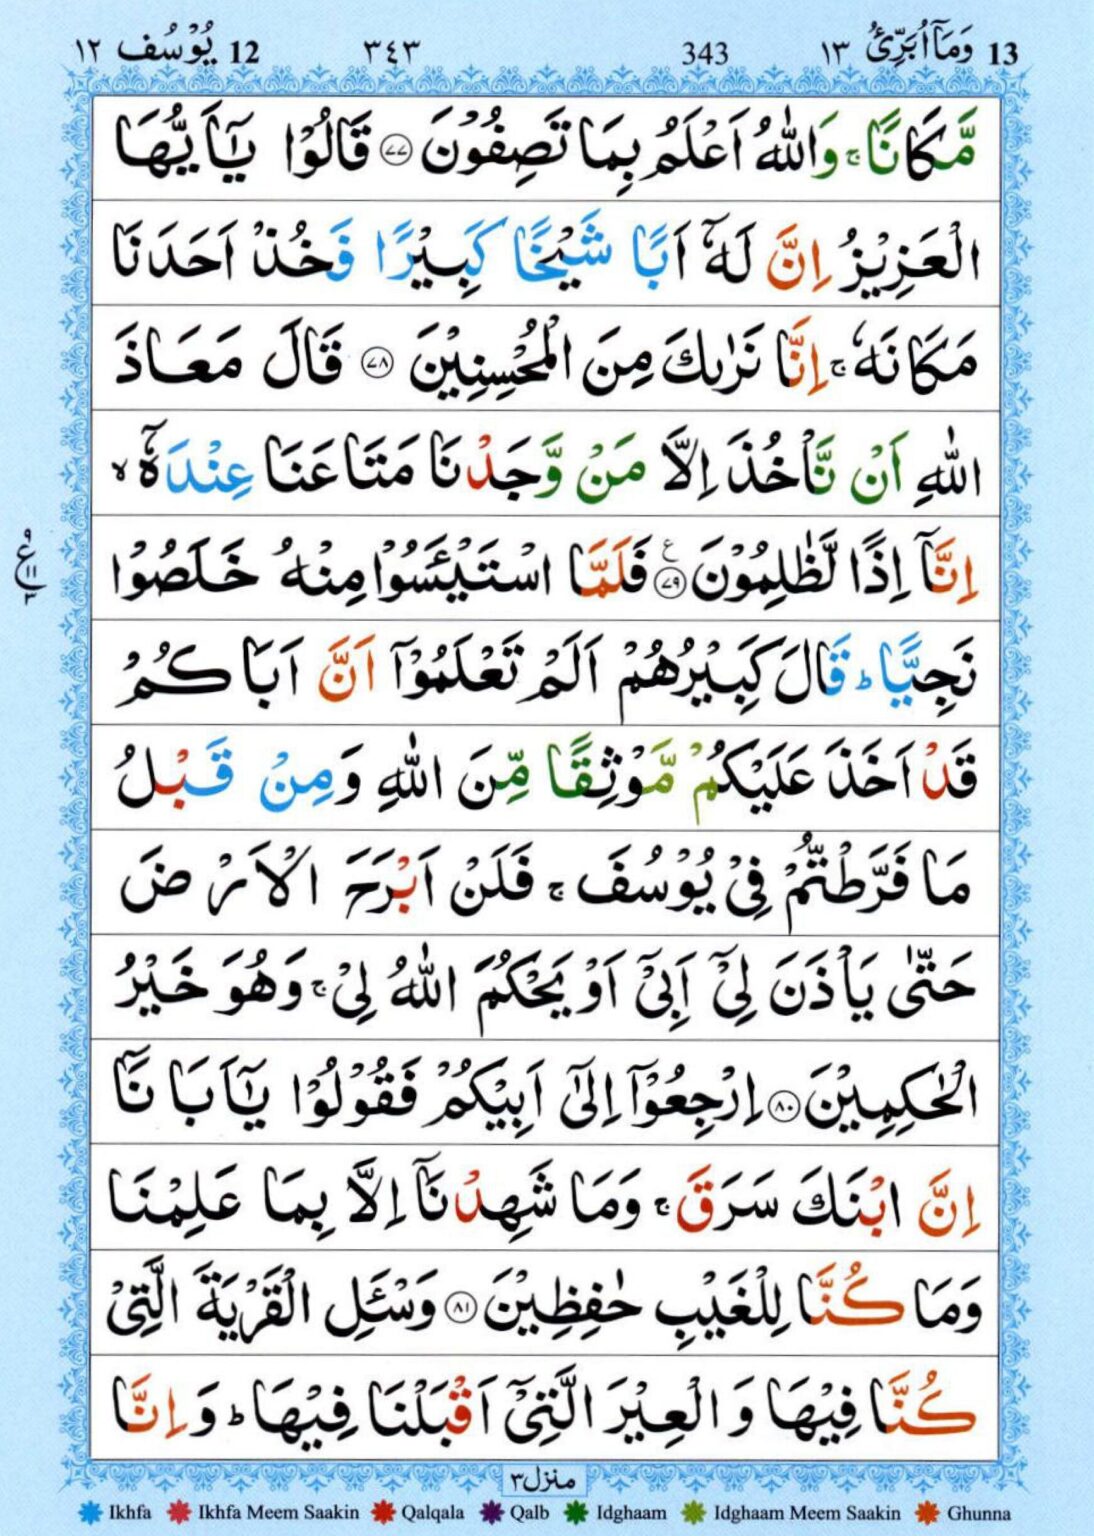 13 وَمَآاُبَرِّئُ ١٣ 343 ٣٤٣ 12 يُوْسُف ١٢
مَّكَانًا ۚ وَاللّٰهُ اَعْلَمُ بِمَا تَصِفُوْنَ ﴿٧٧﴾ قَالُوْا يٰٓاَيُّهَا
الْعَزِيْزُ اِنَّ لَهٗٓ اَبًا شَيْخًا كَبِيْرًا فَخُذْ اَحَدَنَا
مَكَانَهٗ ۚ اِنَّا نَرٰىكَ مِنَ الْمُحْسِنِيْنَ ﴿٧٨﴾ قَالَ مَعَاذَ
اللّٰهِ اَنْ نَّاْخُذَ اِلَّا مَنْ وَّجَدْنَا مَتَاعَنَا عِنْدَهٗٓ ۙ
اِنَّآ اِذًا لَّظٰلِمُوْنَ ﴿٧٩﴾ ع فَلَمَّا اسْتَيْـَٔسُوْا مِنْهُ خَلَصُوْا
ع ١١ ٣
نَجِيًّا ؕ قَالَ كَبِيْرُهُمْ اَلَمْ تَعْلَمُوْٓا اَنَّ اَبَاكُمْ
قَدْ اَخَذَ عَلَيْكُمْ مَّوْثِقًا مِّنَ اللّٰهِ وَمِنْ قَبْلُ
مَا فَرَّطْتُّمْ فِيْ يُوْسُفَ ۚ فَلَنْ اَبْرَحَ الْاَرْضَ
حَتّٰى يَاْذَنَ لِيْٓ اَبِيْٓ اَوْ يَحْكُمَ اللّٰهُ لِيْ ۚ وَهُوَ خَيْرُ
الْحٰكِمِيْنَ ﴿٨٠﴾ اِرْجِعُوْٓا اِلٰٓى اَبِيْكُمْ فَقُوْلُوْا يٰٓاَبَانَآ
اِنَّ ابْنَكَ سَرَقَ ۚ وَمَا شَهِدْنَآ اِلَّا بِمَا عَلِمْنَا
وَمَا كُنَّا لِلْغَيْبِ حٰفِظِيْنَ ﴿٨١﴾ وَسْـَٔلِ الْقَرْيَةَ الَّتِيْ
كُنَّا فِيْهَا وَالْعِيْرَ الَّتِيْٓ اَقْبَلْنَا فِيْهَا ؕ وَاِنَّا
منزل ٣
Ikhfa Ikhfa Meem Saakin Qalqala Qalb Idghaam Idghaam Meem Saakin Ghunna